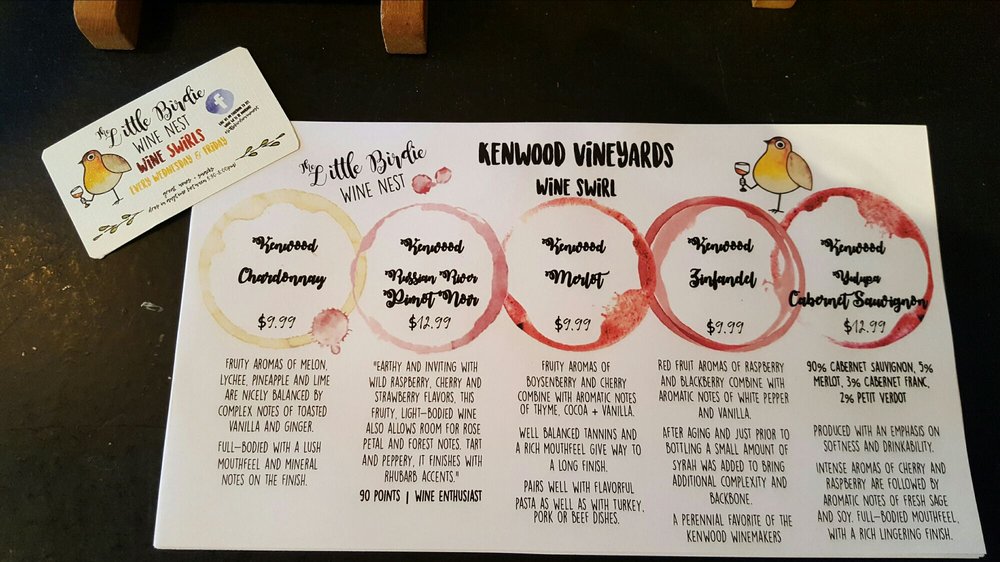 The
Little Birdie
WINE NEST
WINE SWIRLS
EVERY WEDNESDAY & FRIDAY
f
The
Little Birdie
WINE NEST
KENWOOD VINEYARDS
WINE SWIRL
Kenwood
Chardonnay
$9.99
FRUITY AROMAS OF MELON,
LYCHEE, PINEAPPLE AND LIME
ARE NICELY BALANCED BY
COMPLEX NOTES OF TOASTED
VANILLA AND GINGER.
FULL-BODIED WITH A LUSH
MOUTHFEEL AND MINERAL
NOTES ON THE FINISH.
Kenwood
Russian River
Pinot Noir
$12.99
"EARTHY AND INVITING WITH
WILD RASPBERRY, CHERRY AND
STRAWBERRY FLAVORS, THIS
FRUITY, LIGHT-BODIED WINE
ALSO ALLOWS ROOM FOR ROSE
PETAL AND FOREST NOTES. TART
AND PEPPERY, IT FINISHES WITH
RHUBARB ACCENTS."
90 POINTS | WINE ENTHUSIAST
Kenwood
Merlot
$9.99
FRUITY AROMAS OF
BOYSENBERRY AND CHERRY
COMBINE WITH AROMATIC NOTES
OF THYME, COCOA + VANILLA.
WELL BALANCED TANNINS AND
A RICH MOUTHFEEL GIVE WAY TO
A LONG FINISH.
PAIRS WELL WITH FLAVORFUL
PASTA AS WELL AS WITH TURKEY,
PORK OR BEEF DISHES.
Kenwood
Zinfandel
$9.99
RED FRUIT AROMAS OF RASPBERRY
AND BLACKBERRY COMBINE WITH
AROMATIC NOTES OF WHITE PEPPER
AND VANILLA.
AFTER AGING AND JUST PRIOR TO
BOTTLING A SMALL AMOUNT OF
SYRAH WAS ADDED TO BRING
ADDITIONAL COMPLEXITY AND
BACKBONE.
A PERENNIAL FAVORITE OF THE
KENWOOD WINEMAKERS
Kenwood
Yulupa
Cabernet Sauvignon
$12.99
90% CABERNET SAUVIGNON, 5%
MERLOT, 3% CABERNET FRANC,
2% PETIT VERDOT
PRODUCED WITH AN EMPHASIS ON
SOFTNESS AND DRINKABILITY.
INTENSE AROMAS OF CHERRY AND
RASPBERRY ARE FOLLOWED BY
AROMATIC NOTES OF FRESH SAGE
AND SOY. FULL-BODIED MOUTHFEEL,
WITH A RICH LINGERING FINISH.